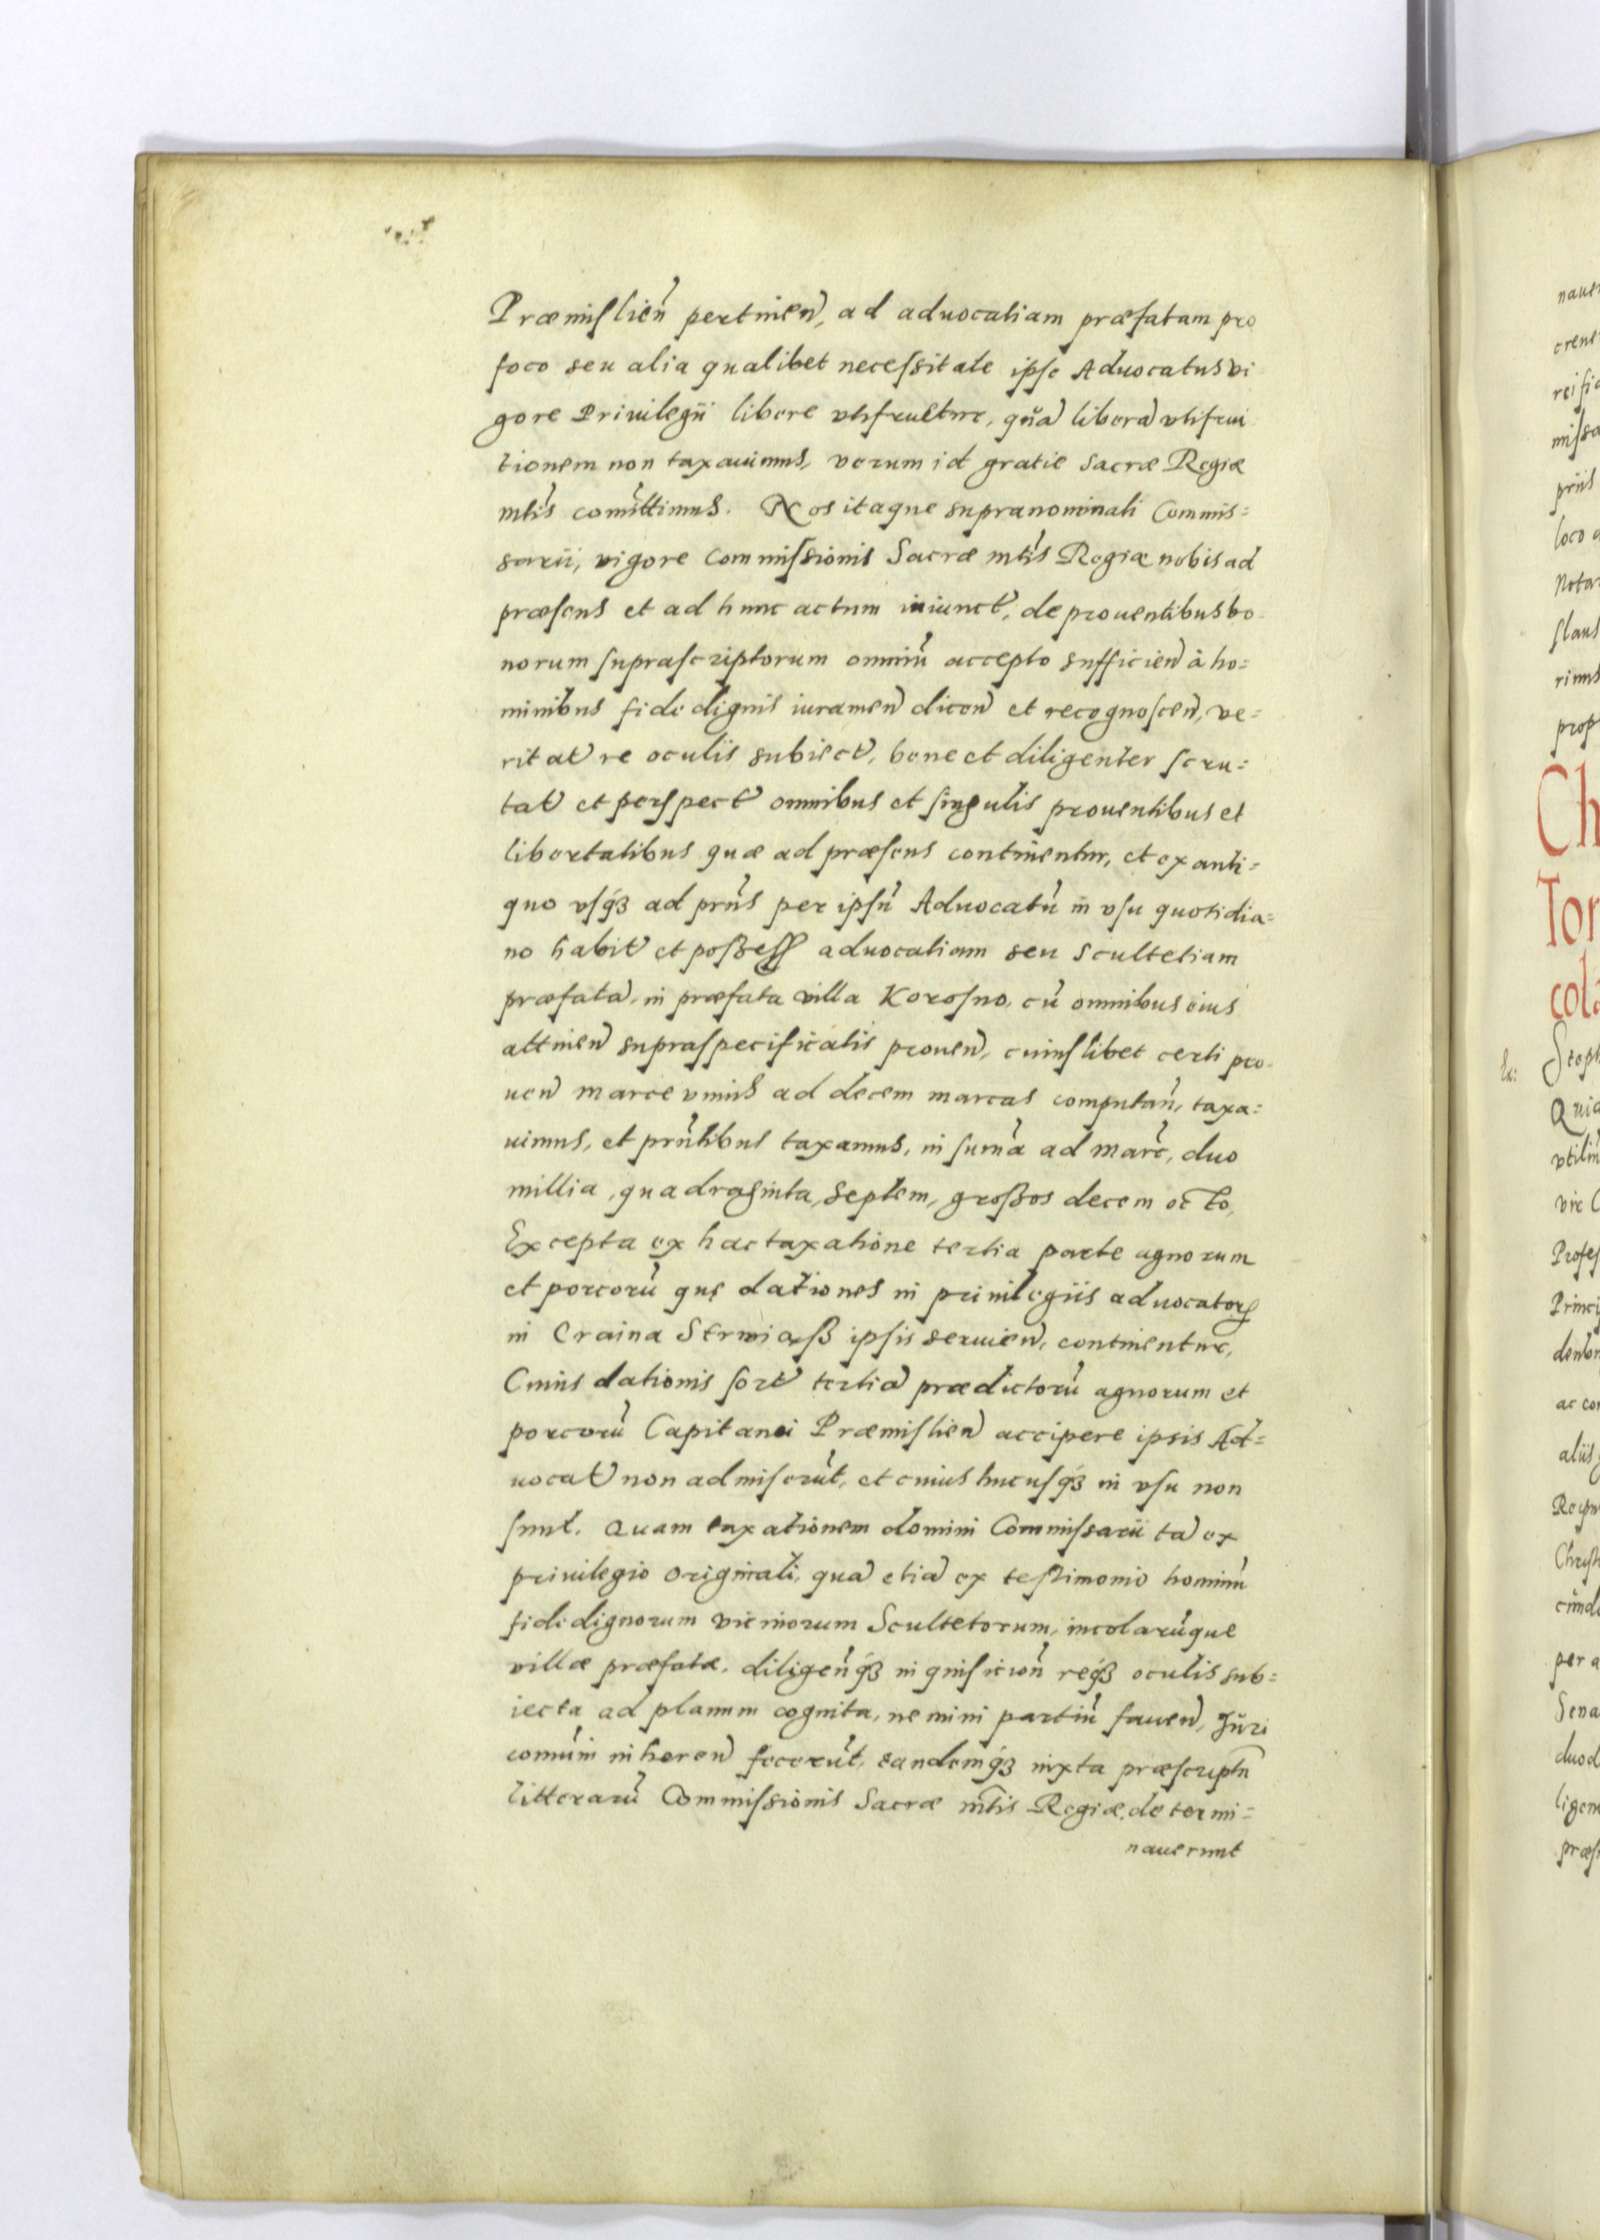 Præmislien̄ pertinen̄, ad aduocatiam præfatam pro
foco seu alia qualibet necessitate ipse Aduocatus vi
gore Priuilegii libere vtifruetur, qūā liberā vtifrui
tionem non taxauimus, verum id gratie Sacræ Regiæ
mtīs com̄ittimus. Nos itaque supranominati Commis=
sarii, vigore Commissionis Sacræ mtīs Regiæ nobis ad
præsens et ad hunc actum iniunct̄, de prouentibus bo
norum suprascriptorum omniū accepto sufficien̄ à ho=
minibus fide dignis iuramen̄ dicen̄ et recognoscen̄, ve=
ritat̄ re oculis subiect̄, bene et diligenter scru=
tat̄ et perspect̄ omnibus et singulis prouentibus et
libertatibus quæ ad præsens continentur, et ex anti=
quo vsq́ꝫ ad prn̄s per ipsū Aduocatū in vsu quotidia=
no habit̄ et possess̄ aduocatiam seu Scultetiam
præfatā, in præfata villa Korosno, cū omnibus eius
attinen̄ supraspecificatis prouen̄, cuiuslibet certi pro
uen̄ marce vnius ad decem marcas computan̄, taxa=
uimus, et prn̄tibus taxamus, in sum̄a ad marc̄, duo
millia, quadraginta, septem, grossos decem octo,
Excepta ex hac taxatione tertia parte agnorum
et porcorū quę dationes in priuilegiis aduocatorꝝ
in Craina Strwiąß ipsis seruien̄, continentur,
Cuius dationis sort̄ tertiā prædictorū agnorum et
porcorū Capitanei Præmislien̄ accipere ipsis Ad=
uocat̄ non admiserūt, et cuius hucusq́ꝫ in vsu non
sunt. Quam taxationem domini Commissarii tā ex
priuilegio originali, quā etiā ex testimonio hominū
fide dignorum vicinorum Scultetorum, incolarūque
villæ præfatæ, diligen̄q́ꝫ inquisicion̄ req́ꝫ oculis sub=
iecta ad planum cognita, nemini partiū fauen̄, Jūri
comūni inheren̄ fecerūt, eandemq́ꝫ iuxta præscriptū
litterarū Commissionis Sacræ mt̄is Regiæ, determi=
nauerunt
Ch
Tor